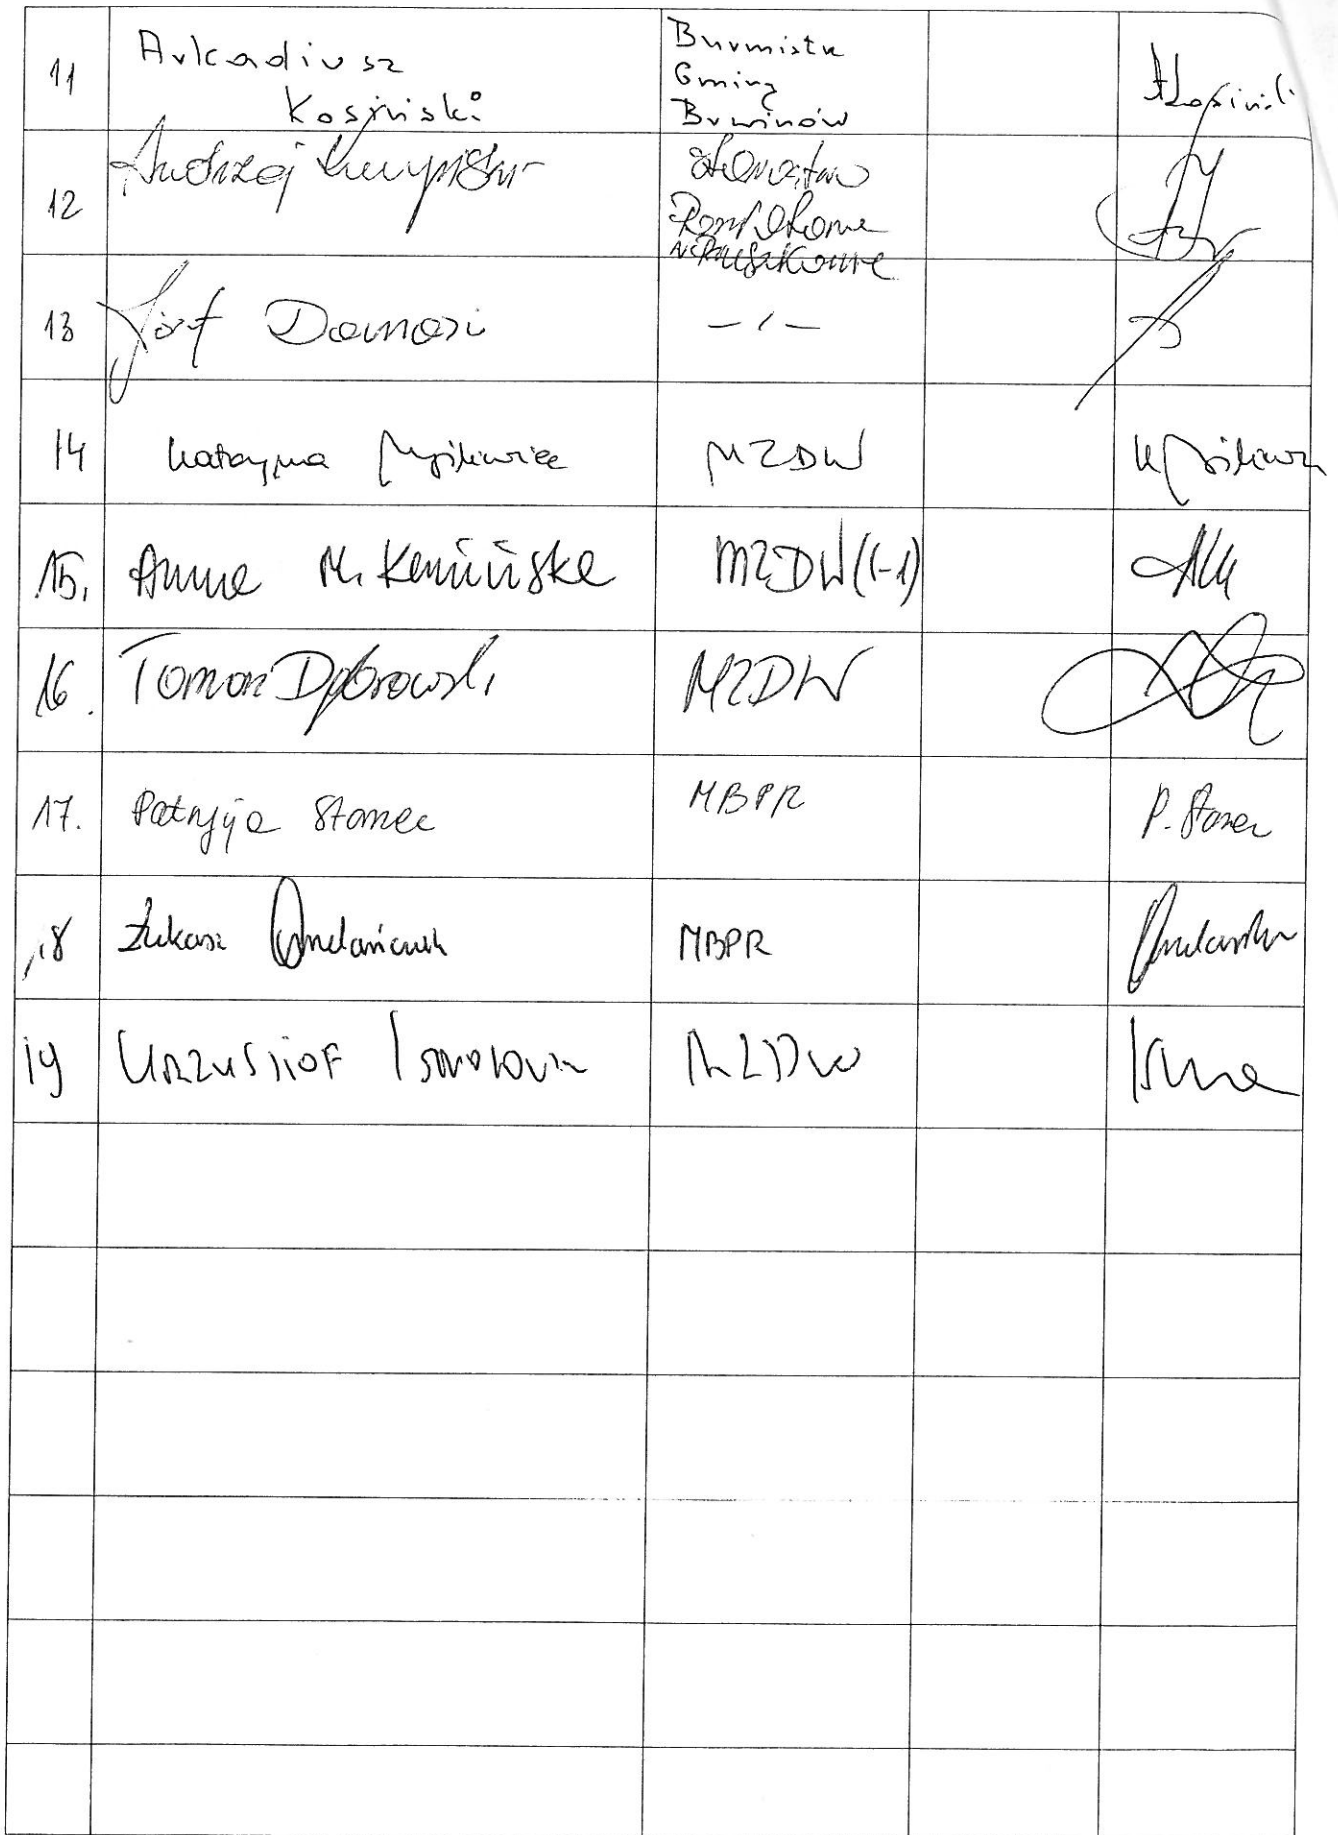 11 Arkadiusz Kosiński Burmistrz Gminy Brwinów AKosiński
12 Andrzej Starostwo Powiatowe w Pruszkowie
13 Józef Domosi — / —
14 Katarzyna Myśliwiec MZDW K Myśliwiec
15. Anna M. Kamińska MZDW (I-1)
16. Tomasz Dąbrowski MZDW
17. Patrycja Stanec MBPR P. Stanec
18 Łukasz MBPR
19 Krzysztof MZDW